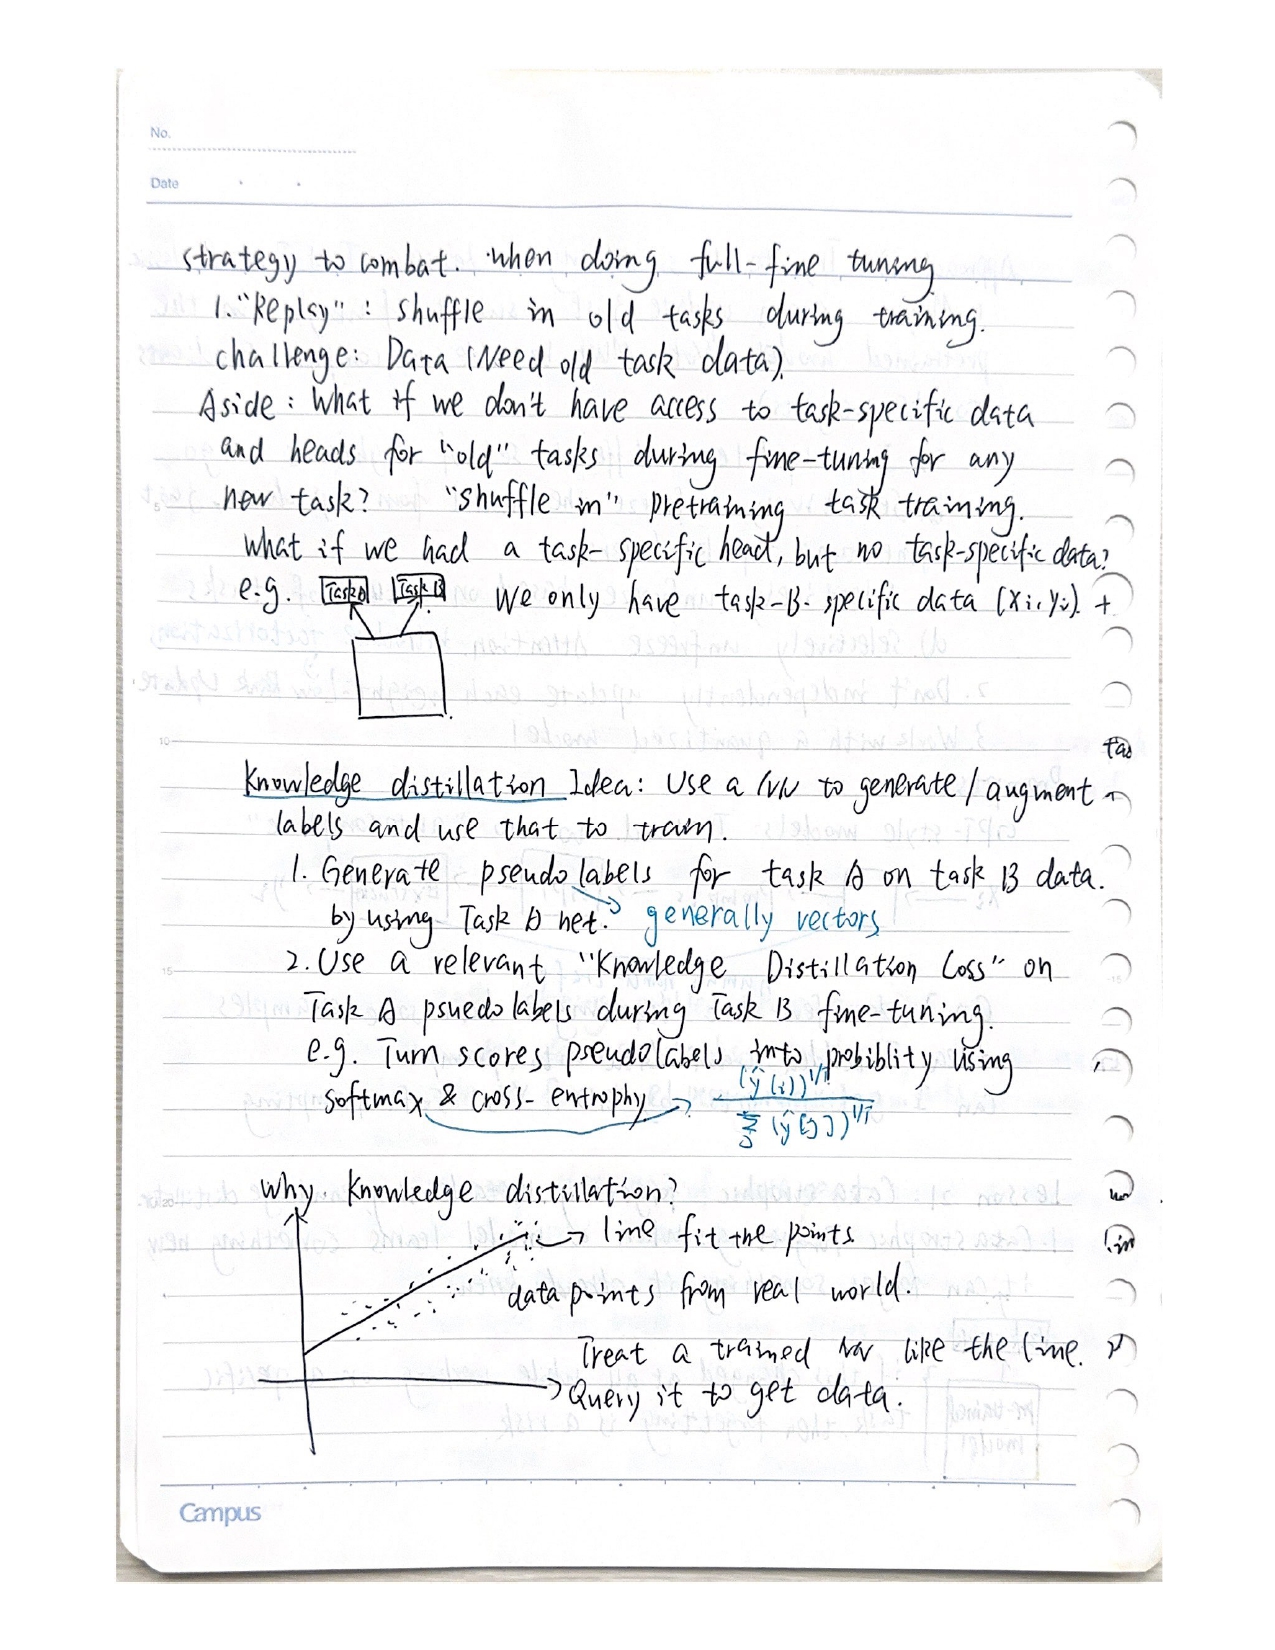 No.
Date
strategy to combat. when doing full-fine tuning
1. "Replay" : shuffle in old tasks during training.
challenge: Data (Need old task data).
Aside : What if we don't have access to task-specific data
and heads for "old" tasks during fine-tuning for any
new task? "shuffle in" pretraining task training.
What if we had a task-specific head, but no task-specific data?
e.g. Task A Task B We only have task-B-specific data (xi, yi). +
Knowledge distillation Idea: Use a NN to generate / augment
labels and use that to train.
1. Generate pseudo labels for task A on task B data.
by using Task A net. generally vectors
2. Use a relevant "Knowledge Distillation Loss" on
Task A psuedo labels during Task B fine-tuning.
e.g. Turn scores pseudolabels into probiblity using
softmax & cross-entrophy (ŷ[i])^1/T / Σ_j (ŷ[j])^1/T
Why Knowledge distillation?
line fit the points
data points from real world.
Treat a trained NN like the line.
Query it to get data.
Campus